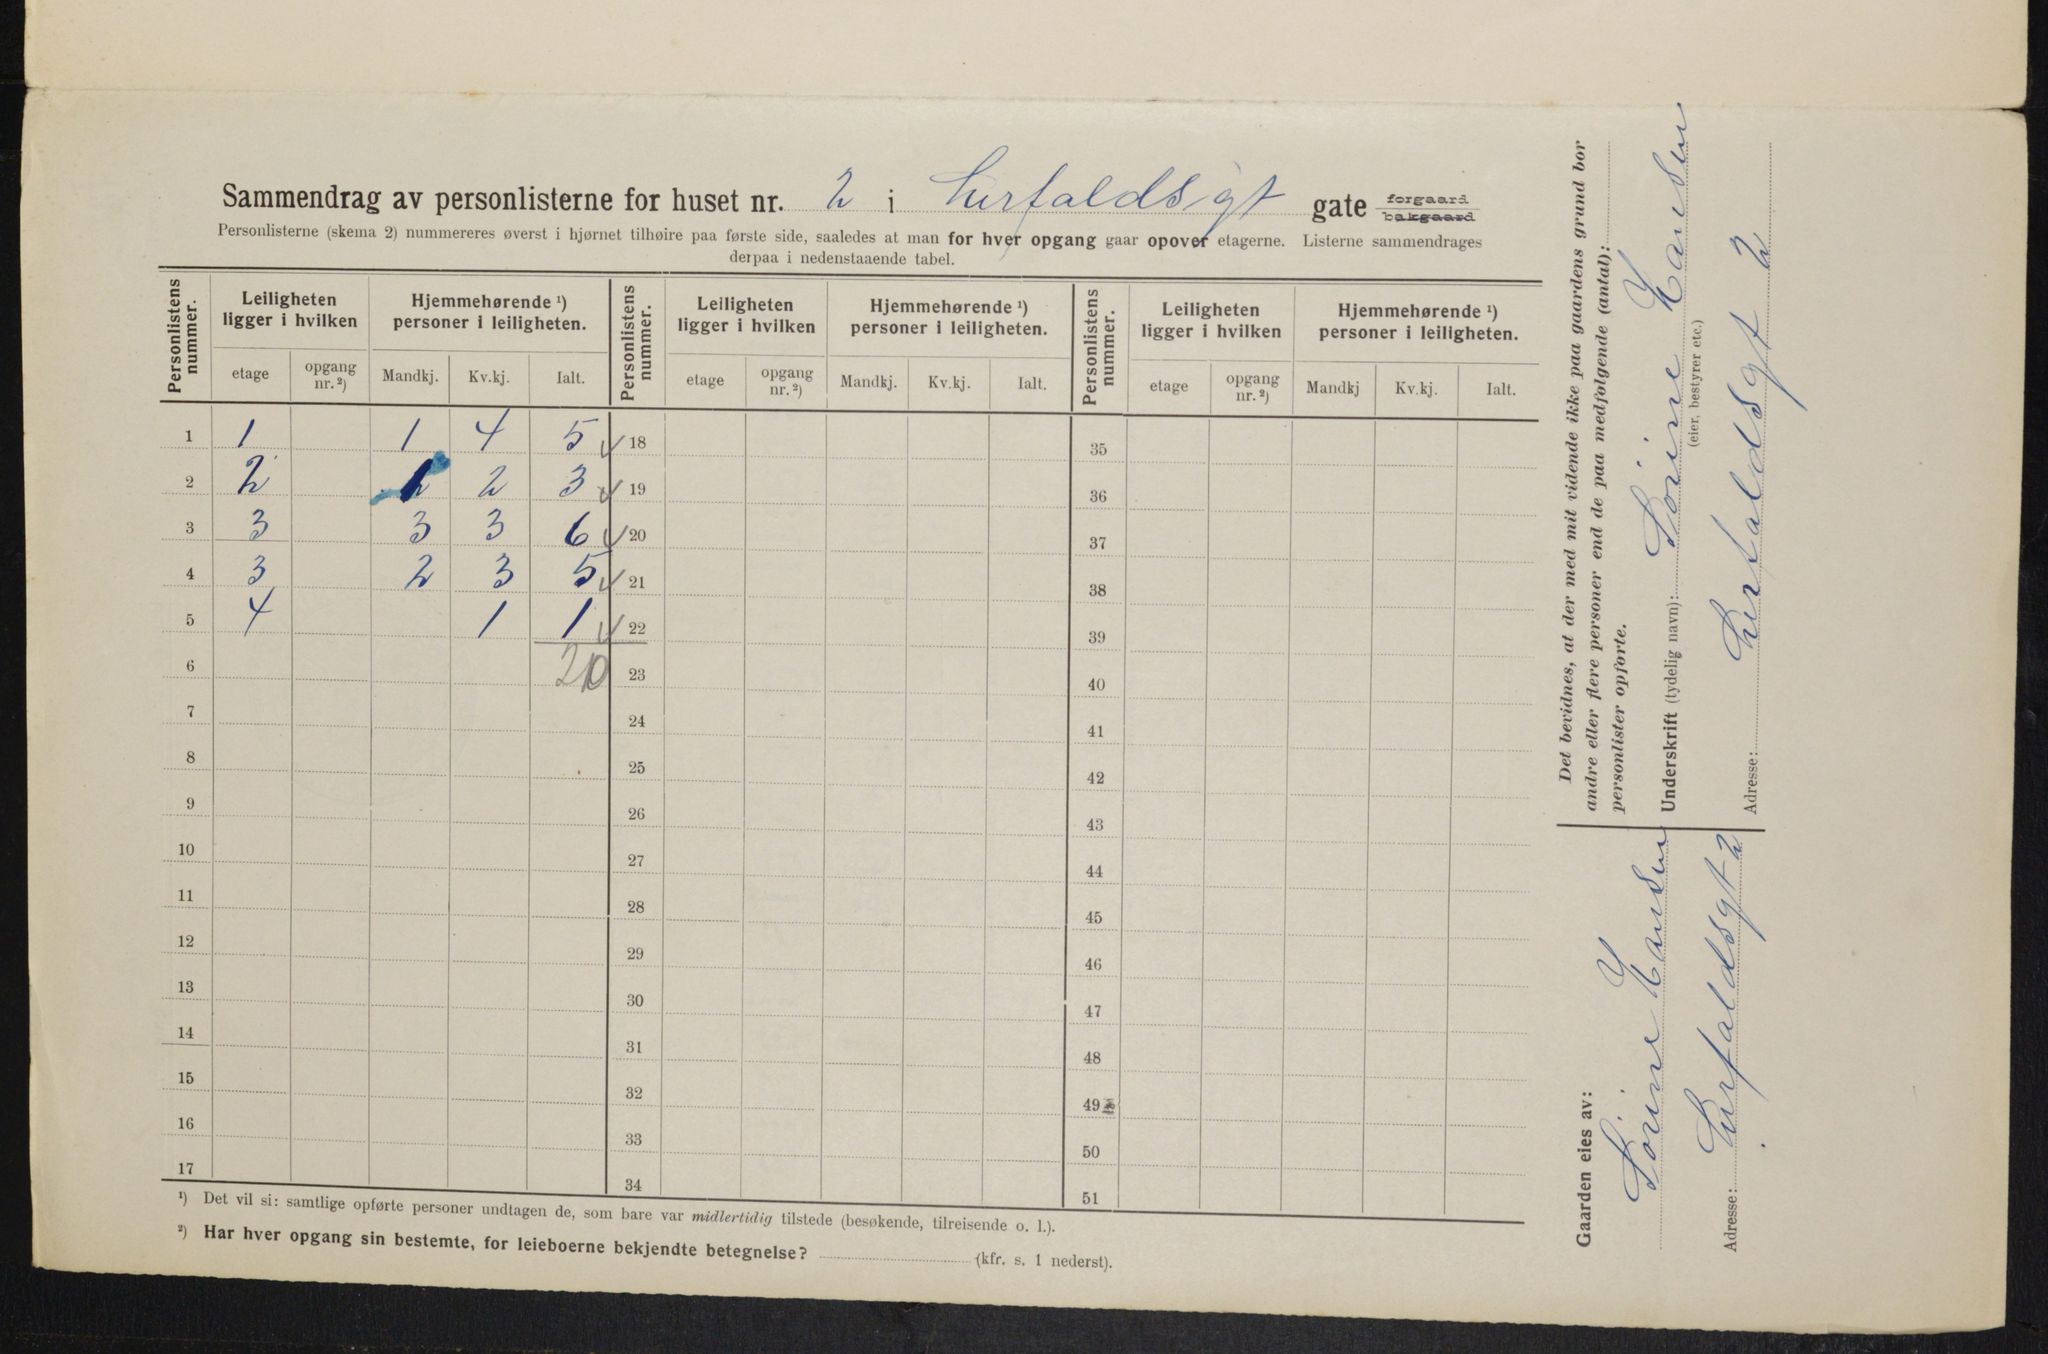 Sammendrag av personlisterne for huset nr. 2 i Lirfaldsgt gate forgaard bakgaard
Personlisterne (skema 2) nummereres øverst i hjørnet tilhøire paa første side, saaledes at man for hver opgang gaar opover etagerne. Listerne sammendrages
derpaa i nedenstaaende tabel.
Personlistens nummer. Leiligheten ligger i hvilken Hjemmehørende ¹) personer i leiligheten. Personlistens nummer. Leiligheten ligger i hvilken Hjemmehørende ¹) personer i leiligheten. Personlistens nummer. Leiligheten ligger i hvilken Hjemmehørende ¹) personer i leiligheten.
etage opgang nr. ²) Mandkj. Kv.kj. Ialt. etage opgang nr. ²) Mandkj. Kv.kj. Ialt. etage opgang nr. ²) Mandkj Kv.kj. Ialt.
1 1 1 4 5 18 35
2 2 1 2 3 19 36
3 3 3 3 6 20 37
4 3 2 3 5 21 38
5 4 1 1 22 39
6 20 23 40
7 24 41
8 25 42
9 26 43
10 27 44
11 28 45
12 29 46
13 30 47
14 31 48
15 32 49
16 33 50
17 34 51
¹) Det vil si: samtlige opførte personer undtagen de, som bare var midlertidig tilstede (besøkende, tilreisende o. l.).
²) Har hver opgang sin bestemte, for leieboerne bekjendte betegnelse? (kfr. s. 1 nederst).
Det bevidnes, at der med mit vidende ikke paa gaardens grund bor
andre eller flere personer end de paa medfølgende (antal):
personlister opførte.
Underskrift (tydelig navn): Lovine Hansen
(eier, bestyrer etc.)
Adresse: Lirfaldsgt 2
Gaarden eies av:
Lovine Hansen
Adresse: Lirfaldsgt 2